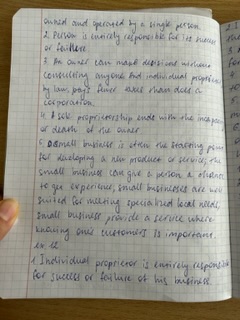 owned and operated by a single person.
2. Person is entirely responsible for its success
or failure
3. An owner can make decisions without
consulting anyone and individual proprietor
by law pays fewer taxes than does a
corporation.
4. A sole proprietorship ends with the incapacity
or death of the owner
5. Small business is often the starting point
for developing a new product or service, the
small business can give a person a chance
to get experience, small businesses are well
suited for meeting specialized local needs,
small business provide a service where
knowing one's customers is important.
ex. 12
1. Individual proprietor is entirely responsible
for success or failure of his business